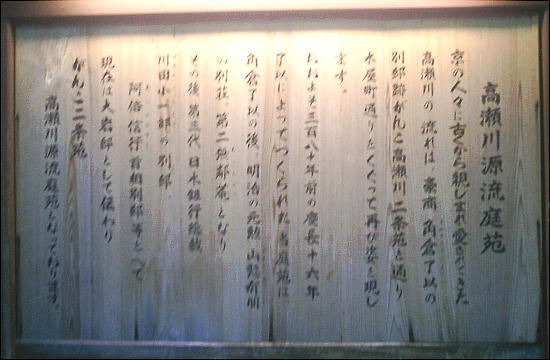 高瀬川源流庭苑
京の人々に古くから親しまれ愛されてきた
高瀬川の流れは、豪商、角倉了以の
別邸跡がんこ高瀬川二条苑と通り
木屋町通りをくぐって再び姿を現し
ます。
およそ三百八十年前の慶長十六年
了以によってつくられた当庭苑は
角倉了以の後、明治の元勲、山縣有朋
の別荘、第二無鄰菴となり
その後、第三代日本銀行総裁
川田小一郎の別邸
阿倍信行首相別邸等とへて
現在は大岩邸として伝わり
がんこ二条苑
高瀬川源流庭苑となっております。